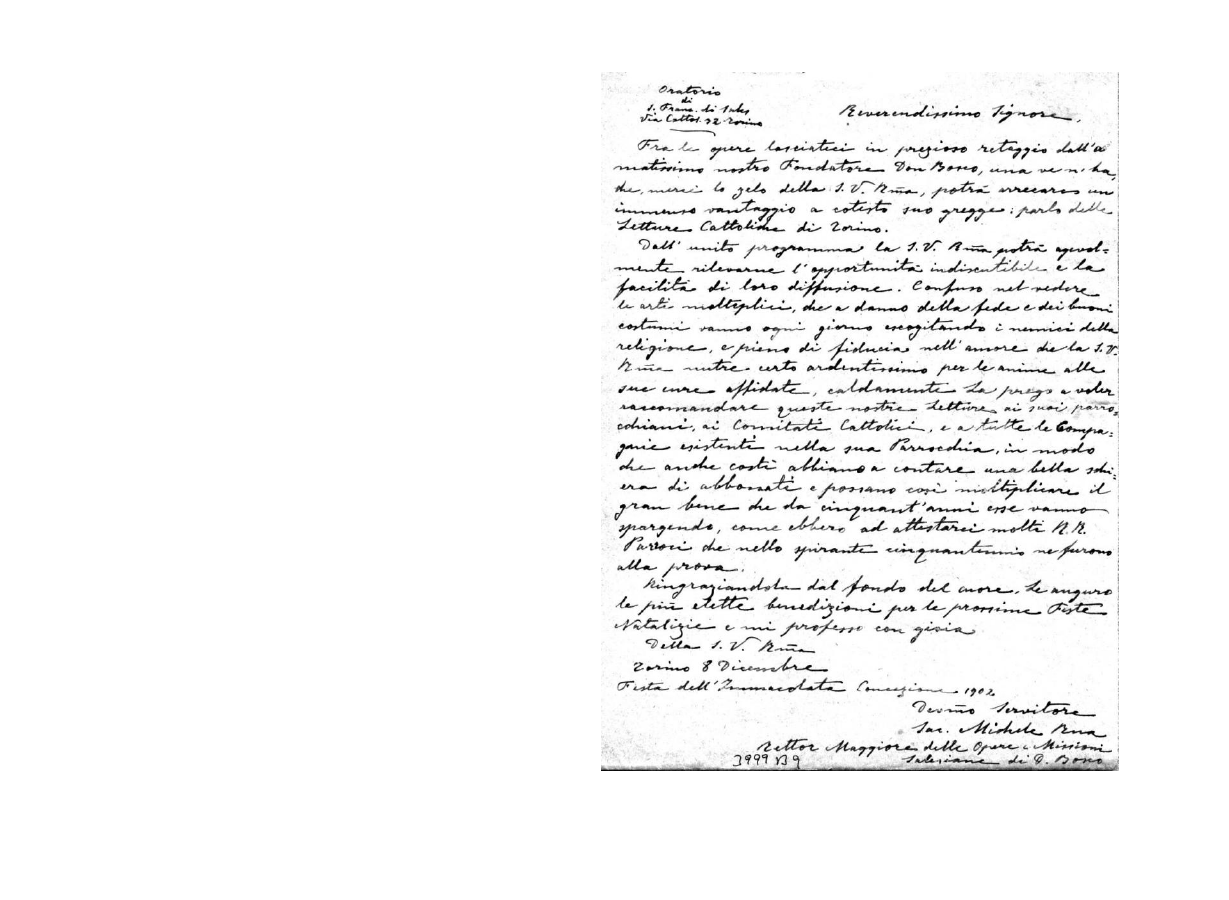 Oratorio
di
S. Franc. di Sales
Via Cottol. 32 Torino
Reverendissimo Signore,
Fra le opere lasciateci in prezioso retaggio dall'a
matissimo nostro Fondatore Don Bosco, una ve n'ha,
che, mercè lo zelo della S. V. Rm̃a, potrà arrecare un
immenso vantaggio a cotesto suo gregge: parlo delle
Letture Cattoliche di Torino.
Dall' unito programma la S. V. Rm̃a potrà agevol=
mente rilevarne l'opportunità indiscutibile e la
facilità di loro diffusione. Confuso nel vedere
le arti molteplici, che a danno della fede e dei buoni
costumi vanno ogni giorno escogitando i nemici della
religione, e pieno di fiducia nell'amore che la S. V.
Rm̃a nutre certo ardentissimo per le anime alle
sue cure affidate, caldamente La prego a voler
raccomandare queste nostre Letture ai suoi parro=
cchiani, ai Comitati Cattolici, e a tutte le Compa=
gnie esistenti nella sua Parrocchia, in modo
che anche costì abbiano a contare una bella schi=
era di abbonati e possano così moltiplicare il
gran bene che da cinquant'anni esse vanno
spargendo, come ebbero ad attestarci molti R.R.
Parroci che nello spirante cinquantennio ne furono
alla prova.
Ringraziandola dal fondo del cuore, Le auguro
le più elette benedizioni per le prossime Feste
Natalizie e mi professo con gioia
Della S. V. Rm̃a
Torino 8 Dicembre
Festa dell'Immacolata Concezione 1902
Devm̃o Servitore
Sac. Michele Rua
Rettor Maggiore delle Opere e Missioni
Salesiane di D. Bosco
3999 B9